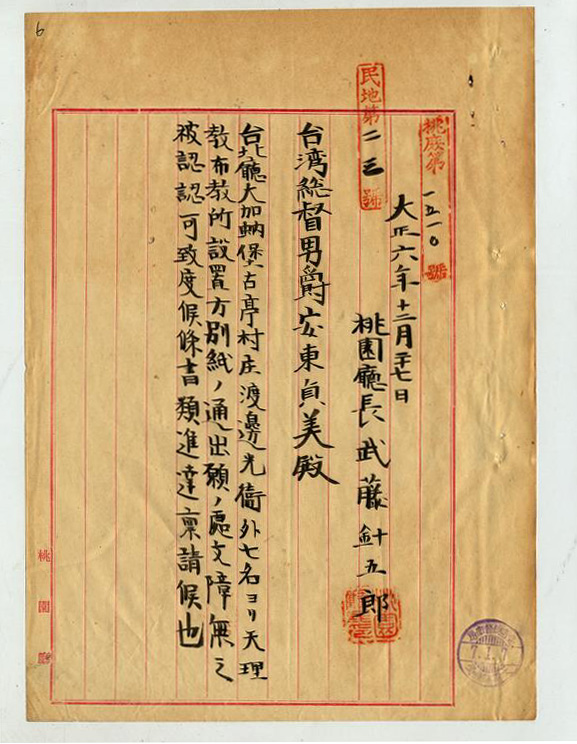 桃庶第一五一〇號
民地第二三號
大正六年十二月二十七日
桃園廳長武藤針五郎
台湾総督男爵安東貞美殿
台北廳大加蚋堡古亭村庄渡邊光衞外七名ヨリ天理
教布教所設置方別紙ノ通出願ノ處支障無之
被認認可致度候條書類進達稟請候也
桃園廳
6